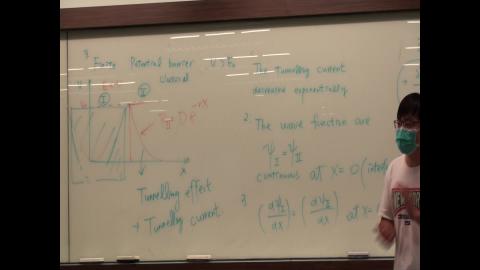 3. Energy Potential barrier
classical
I
II
D e^-rx
x
Tunnelling effect
→ Tunnelling current
The tunnelling current
decreases exponentially
2. The wave function are
ψ_I = ψ_II
continuous at x = 0
3
(dψ_I/dx) = (dψ_II/dx) at x =